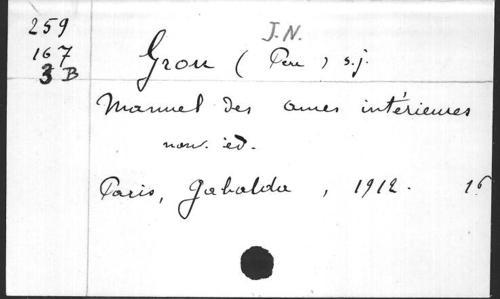 259
167
3 B
J.N.
Grou ( Père ) s.j.
Manuel des ames intérieures
nouv. éd.
Paris, Gabalda , 1912. 16